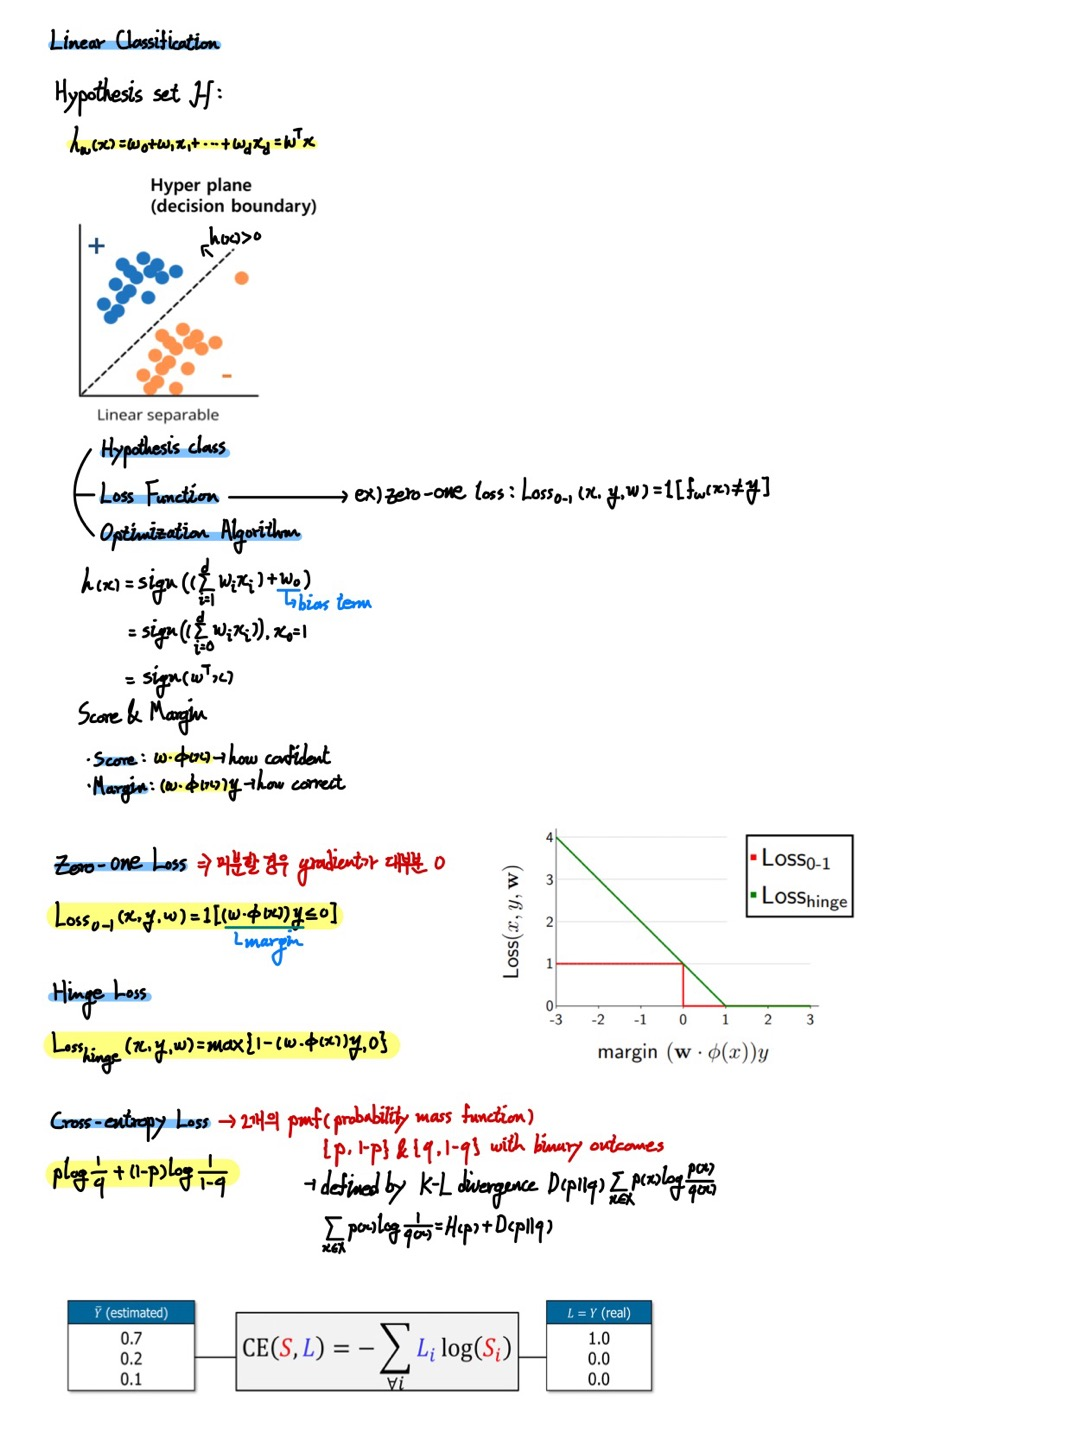 Linear Classification
Hypothesis set H:
h_w(x)=w₀+w₁x₁+⋯+w_d x_d=wᵀx
Hyper plane
(decision boundary)
h(x)>0
+
-
Linear separable
Hypothesis class
Loss Function → ex) zero-one loss : Loss₀₋₁(x, y, w)=1[f_w(x)≠y]
Optimization Algorithm
h(x)=sign((∑_{i=1}^{d} w_i x_i)+w₀)
bias term
=sign((∑_{i=0}^{d} w_i x_i)), x₀=1
= sign(wᵀx)
Score & Margin
·Score: w·ϕ(x)→how confident
·Margin: (w·ϕ(x))y→how correct
Zero-one Loss ⇒ 미분할 경우 gradient가 대부분 0
Loss₀₋₁(x,y,w)=1[(w·ϕ(x))y≤0]
margin
Hinge Loss
Loss_hinge(x,y,w)=max{1-(w·ϕ(x))y,0}
Loss(x, y, w)
4
3
2
1
0
-3 -2 -1 0 1 2 3
margin (w · ϕ(x))y
Loss₀₋₁
Loss_hinge
Cross-entropy Loss → 2개의 pmf(probability mass function)
{p, 1-p} & {q, 1-q} with binary outcomes
p log 1/q + (1-p) log 1/(1-q)
→ defined by K-L divergence D(p||q) ∑_{x∈X} p(x) log p(x)/q(x)
∑_{x∈X} p(x) log 1/q(x) = H(p)+D(p||q)
Ȳ (estimated)
0.7
0.2
0.1
CE(S, L) = −∑_{∀i} L_i log(S_i)
L = Y (real)
1.0
0.0
0.0